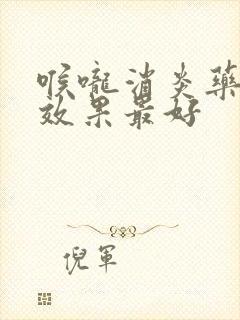 喉嚨消炎藥
效果最好
倪軍